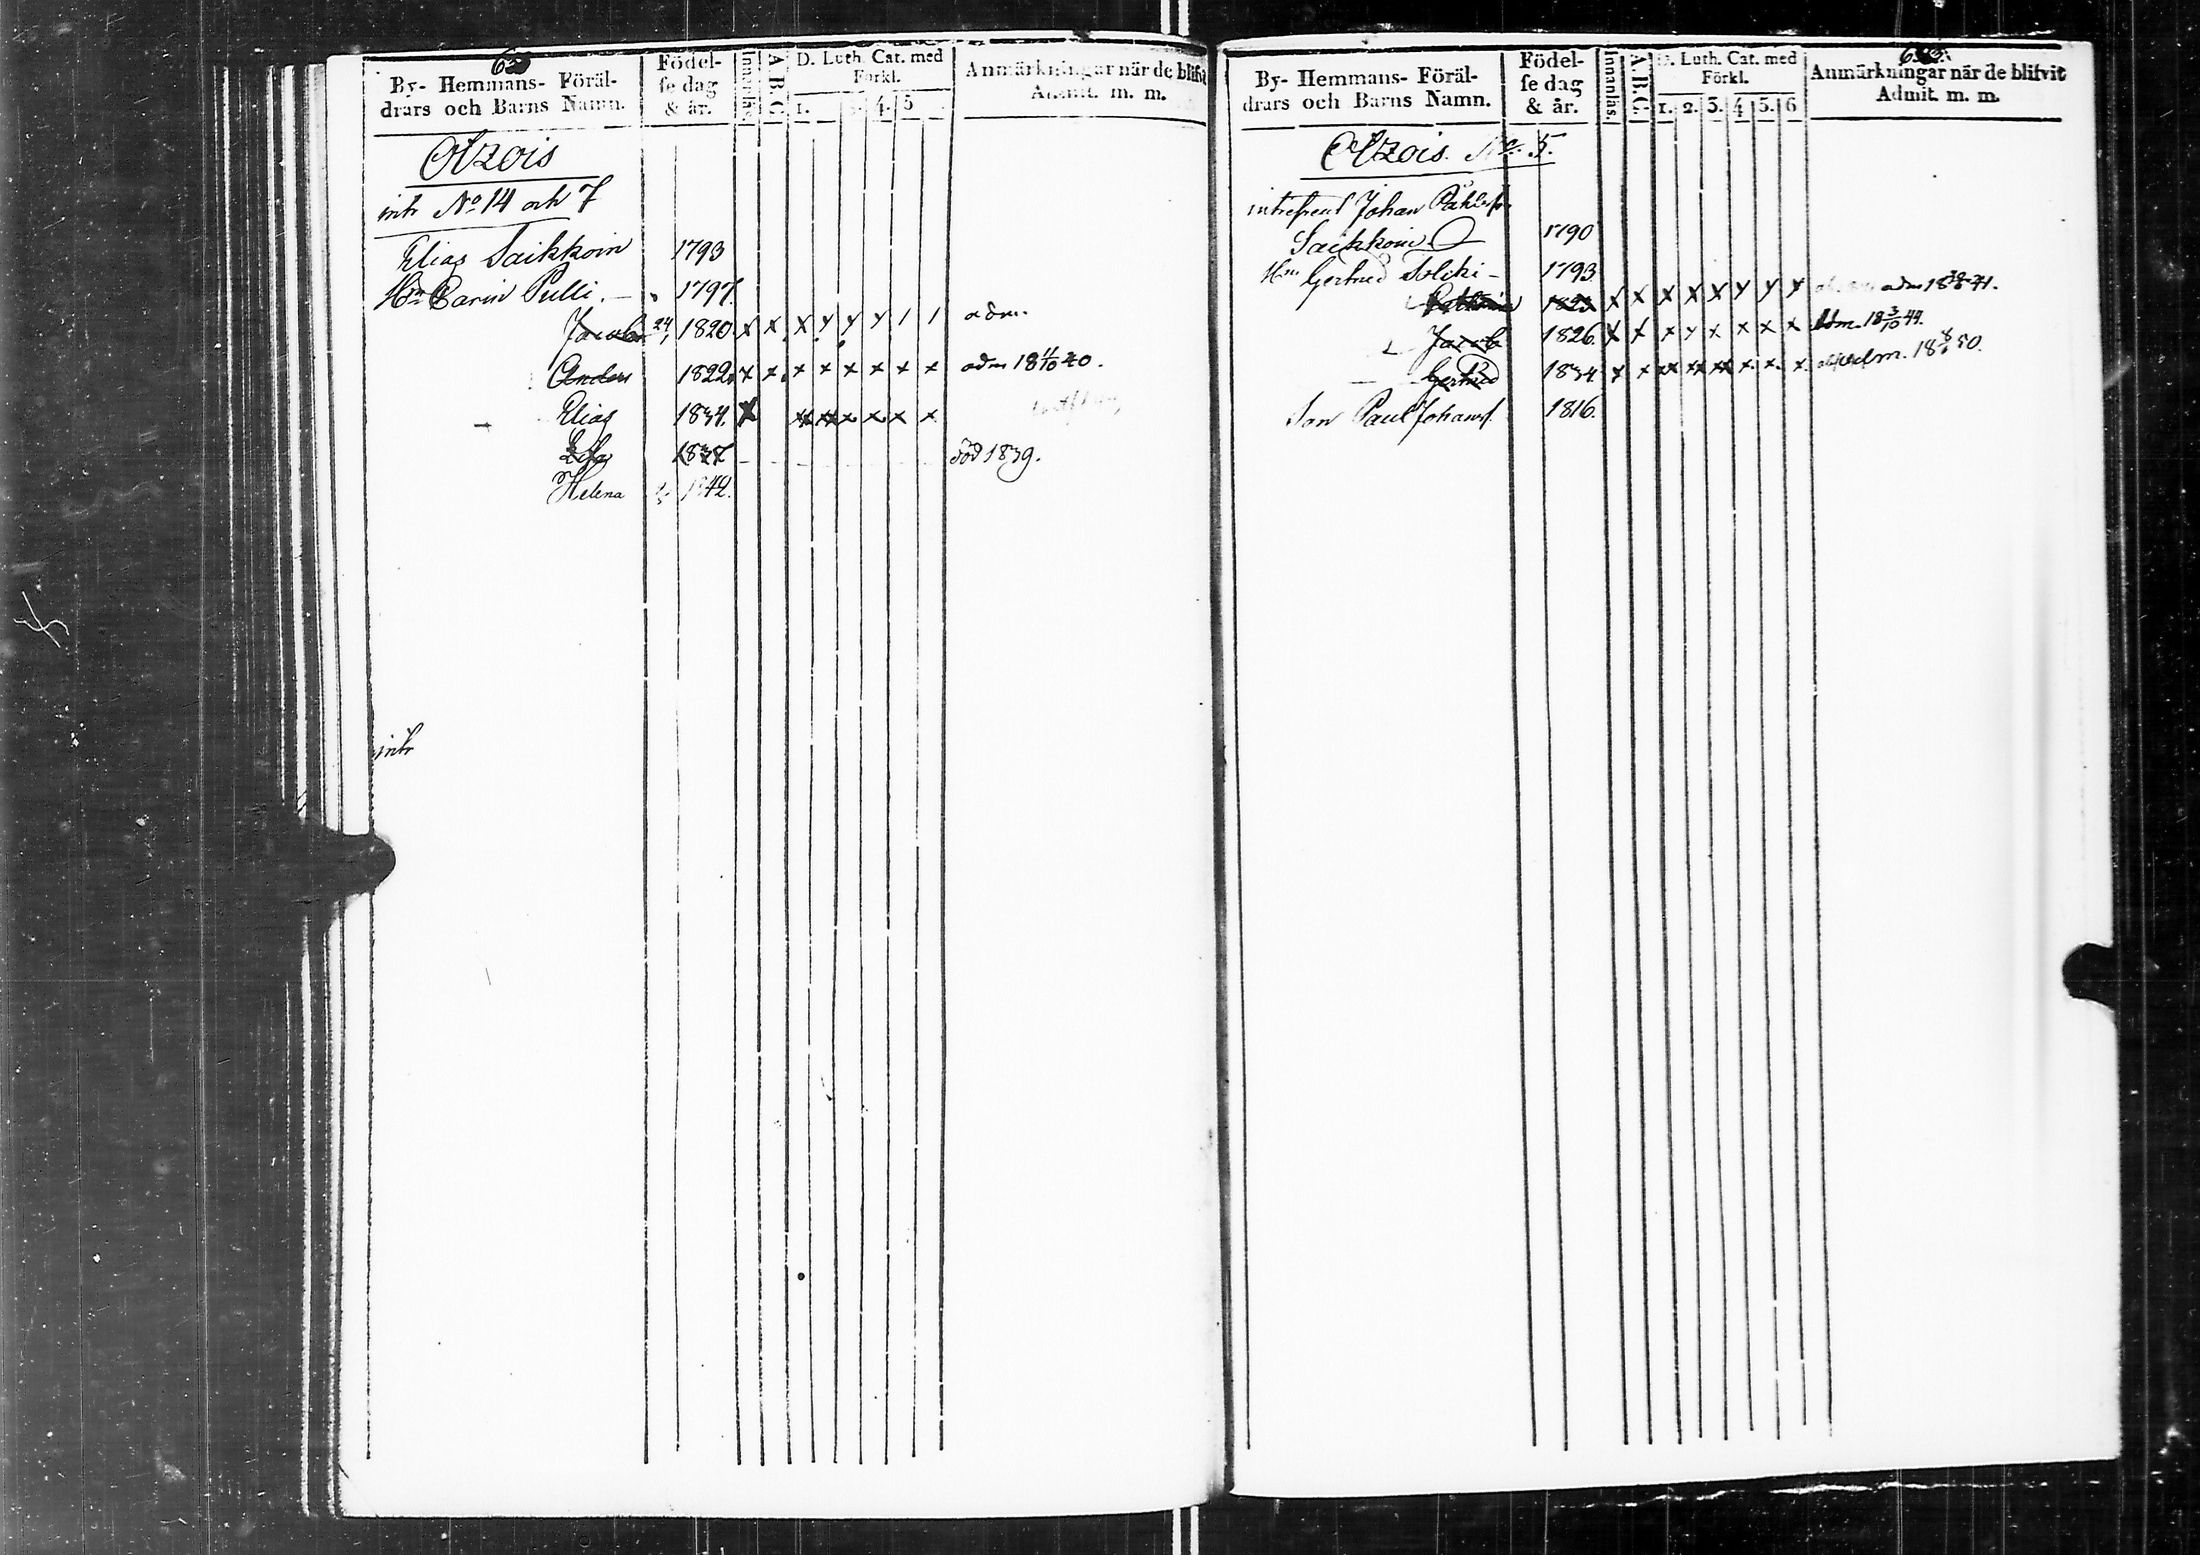 By- Hemmans- Föräl-
drars och Barns Namn.
Födel-
se dag
& år.
Innanläs.
A.B.C.
D. Luth. Cat. med
Förkl.
1. 4. 5
Anmärkningar när de blifvit
Admit. m. m.
Alzois
intr No 14 och 7
Elias Saikkoin 1793
Hn Carin Pulli. 1797.
Jacob 24/1 1820 x x x y y y 1 1 adm.
Anders 1822. x x x x x x x x adm 18 11/10 40.
Elias 1834. x x x x x x x
1837 död 1839.
Helena 1842.
intr
By- Hemmans- Föräl-
drars och Barns Namn.
Födel-
se dag
& år.
Innanläs.
A.B.C.
D. Luth. Cat. med
Förkl.
1. 2. 3. 4 5. 6
Anmärkningar när de blifvit
Admit. m. m.
Alzois. No. 5.
Johan
Saikkoin 1790
Hn Gertrud Solcki - 1793
1823 x x x x x y y y adm
Jacob 1826. x x x y x x x x Adm. 18 3/10 44.
Gertrud 1834 x x x x x x x x adm. 50.
Son Paul Johansf. 1816.